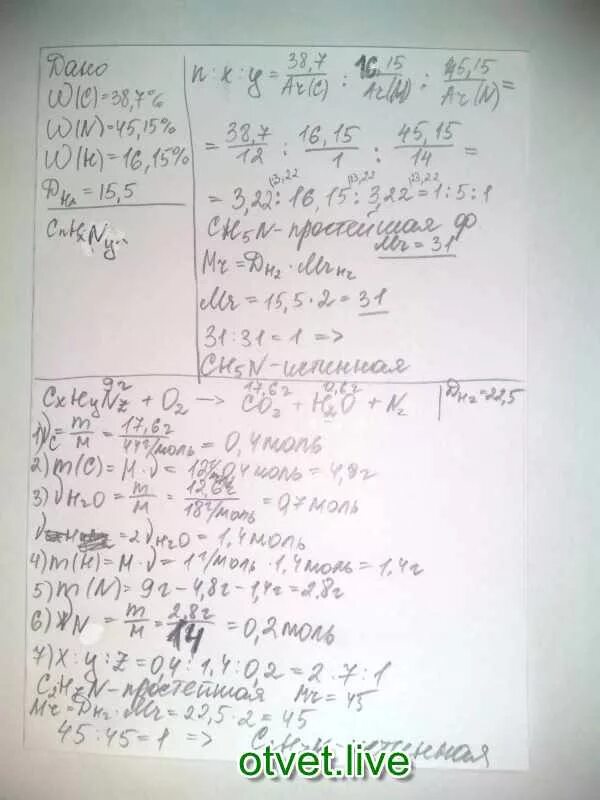 Дано
W(C)=38,7%
W(N)=45,15%
W(H)=16,15%
D H₂ = 15,5
CnHxNy
n : x : y = 38,7/Ar(C) : 16,15/Ar(H) : 45,15/Ar(N) =
= 38,7/12 : 16,15/1 : 45,15/14 =
= 3,22 : 16,15 : 3,22 = 1:5:1
CH₅N - простейшая ф
Mr = 31
Mr = D H₂ · Mr H₂
Mr = 15,5 · 2 = 31
31 : 31 = 1 =>
CH₅N - истенная
9г 17,6г 0,6г
CxHyNz + O₂ → CO₂ + H₂O + N₂ | D H₂ = 22,5
1) ν C = m/M = 17,6г/44г/моль = 0,4 моль
2) m(C) = M · ν = 12 · 0,4 моль = 4,8г
3) ν H₂O = m/M = 12,6г/18г/моль = 0,7 моль
= 2 ν H₂O = 1,4 моль
4) m(H) = M · ν = 1г/моль · 1,4 моль = 1,4г
5) m(N) = 9г - 4,8г - 1,4г = 2,8г
6) ν N = m/M = 2,8г/14 = 0,2 моль
7) X : y : Z = 0,4 : 1,4 : 0,2 = 2 : 7 : 1
C₂H₇N - простейшая Mr = 45
Mr = D H₂ · Mr = 22,5 · 2 = 45
45 : 45 = 1 => C₂H₇N - истенная
otvet.live